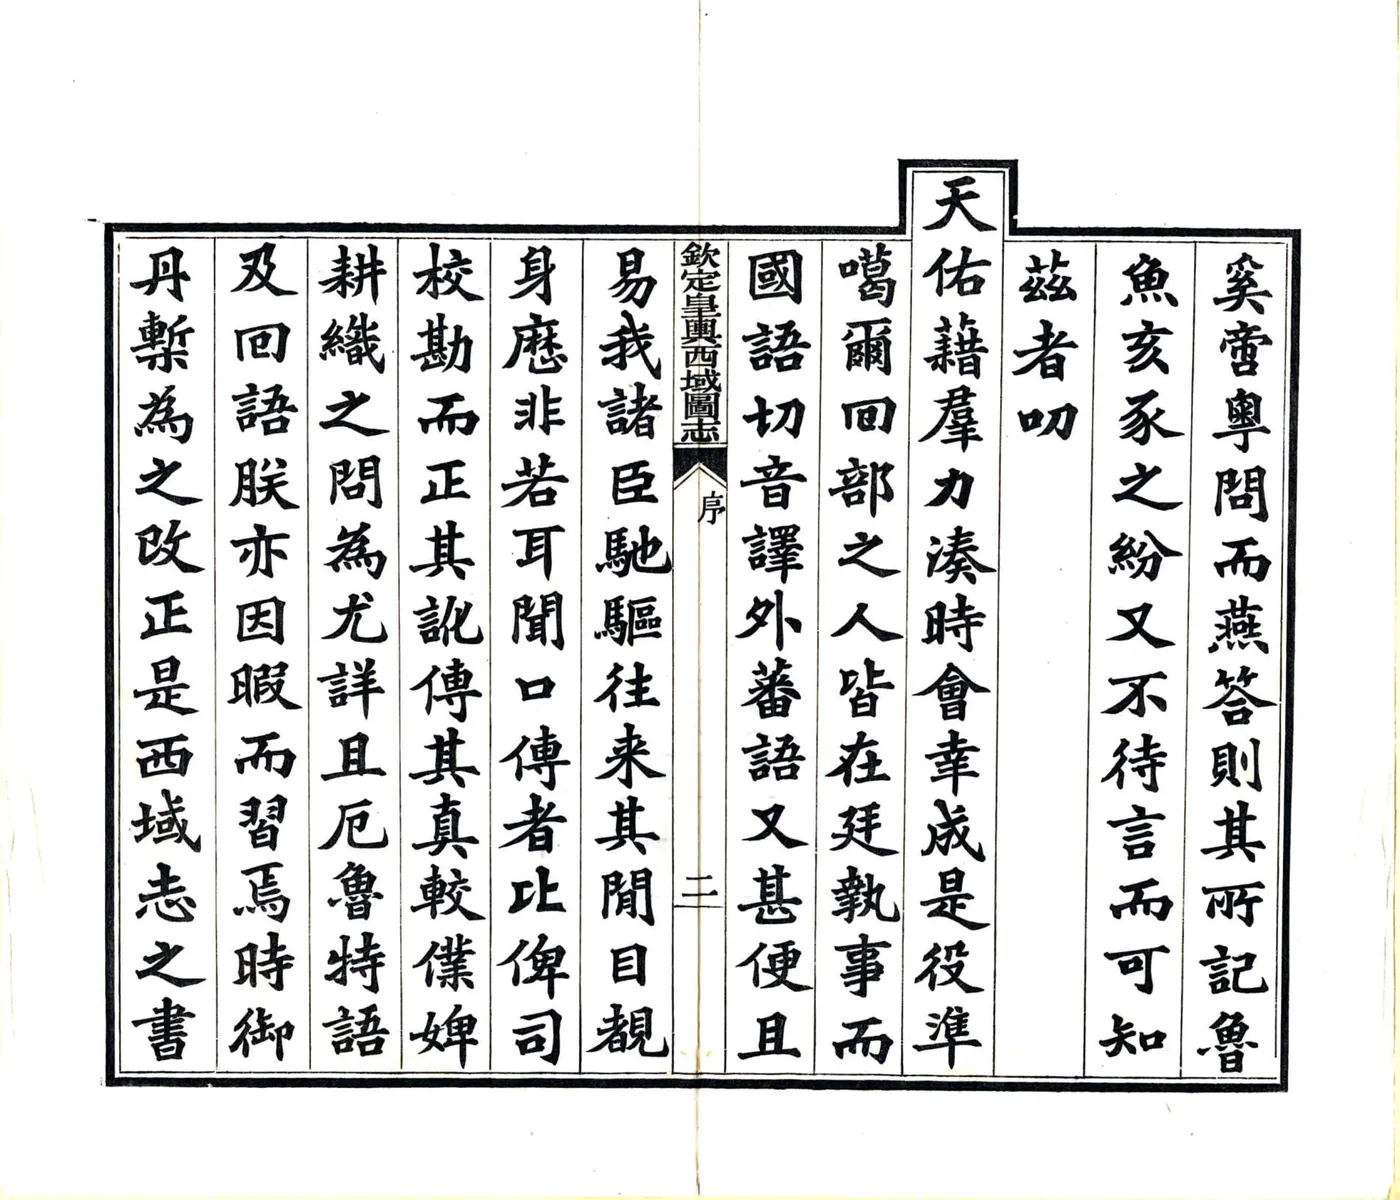 奚啻粵問而燕答則其所記魯
魚亥豕之紛又不待言而可知
茲者叨
天佑藉羣力湊時會幸成是役準
噶爾回部之人皆在廷執事而
國語切音譯外蕃語又甚便且
欽定皇輿西域圖志
序
二
易我諸臣馳驅往来其閒目覩
身歷非若耳聞口傳者比俾司
校勘而正其訛傳其真較僕婢
耕織之問為尤詳且厄魯特語
及回語朕亦因暇而習焉時御
丹槧為之改正是西域志之書